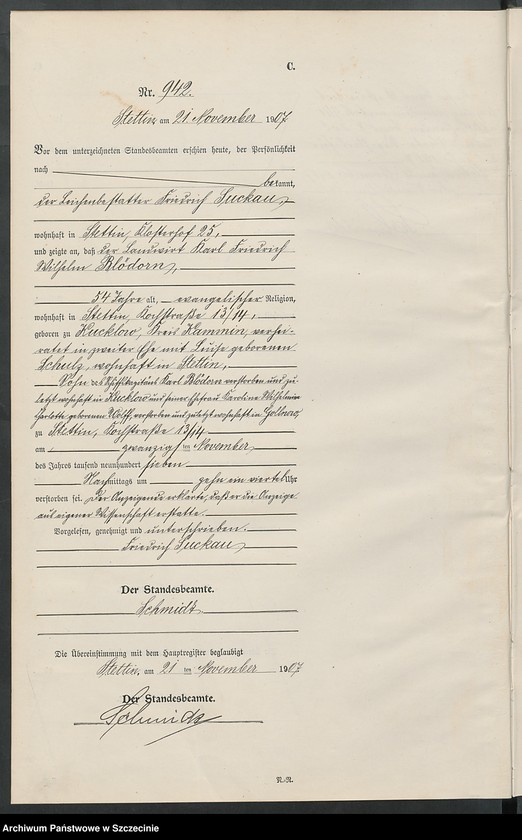 C.
Nr. 942.
Stettin, am 21 November 1907
Vor dem unterzeichneten Standesbeamten erschien heute, der Persönlichkeit
nach
bekannt,
der Leichenbestatter Friedrich Suckau,
wohnhaft in Stettin, Klosterhof 25,
und zeigte an, daß der Landwirt Karl Friedrich
Wilhelm Blödorn,
54 Jahre alt, evangelischer Religion,
wohnhaft in Stettin, Kochstraße 13/14,
geboren zu Kucklow, Kreis Kammin, verhei-
ratet in zweiter Ehe mit Luise geborenen
Schulz, wohnhaft in Stettin,
Sohn des Schiffskapitäns Karl Blödorn verstorben und zu-
letzt wohnhaft in Kucklow und seiner Ehefrau Karoline Wilhelmine
Charlotte geborenen Wolff, verstorben und zuletzt wohnhaft in Gollnow,
zu Stettin, Kochstraße 13/14
am zwanzigsten November
des Jahres tausend neunhundert sieben
Nachmittags um zehn ein viertel Uhr
verstorben sei. Der Anzeigende erklärte, daß er die Anzeige
aus eigener Wissenschaft erstatte.
Vorgelesen, genehmigt und unterschrieben.
Friedrich Suckau
Der Standesbeamte.
Schmidt
Die Übereinstimmung mit dem Hauptregister beglaubigt
Stettin, am 21 ten November 1907
Der Standesbeamte.
Schmidt
Archiwum Państwowe w Szczecinie